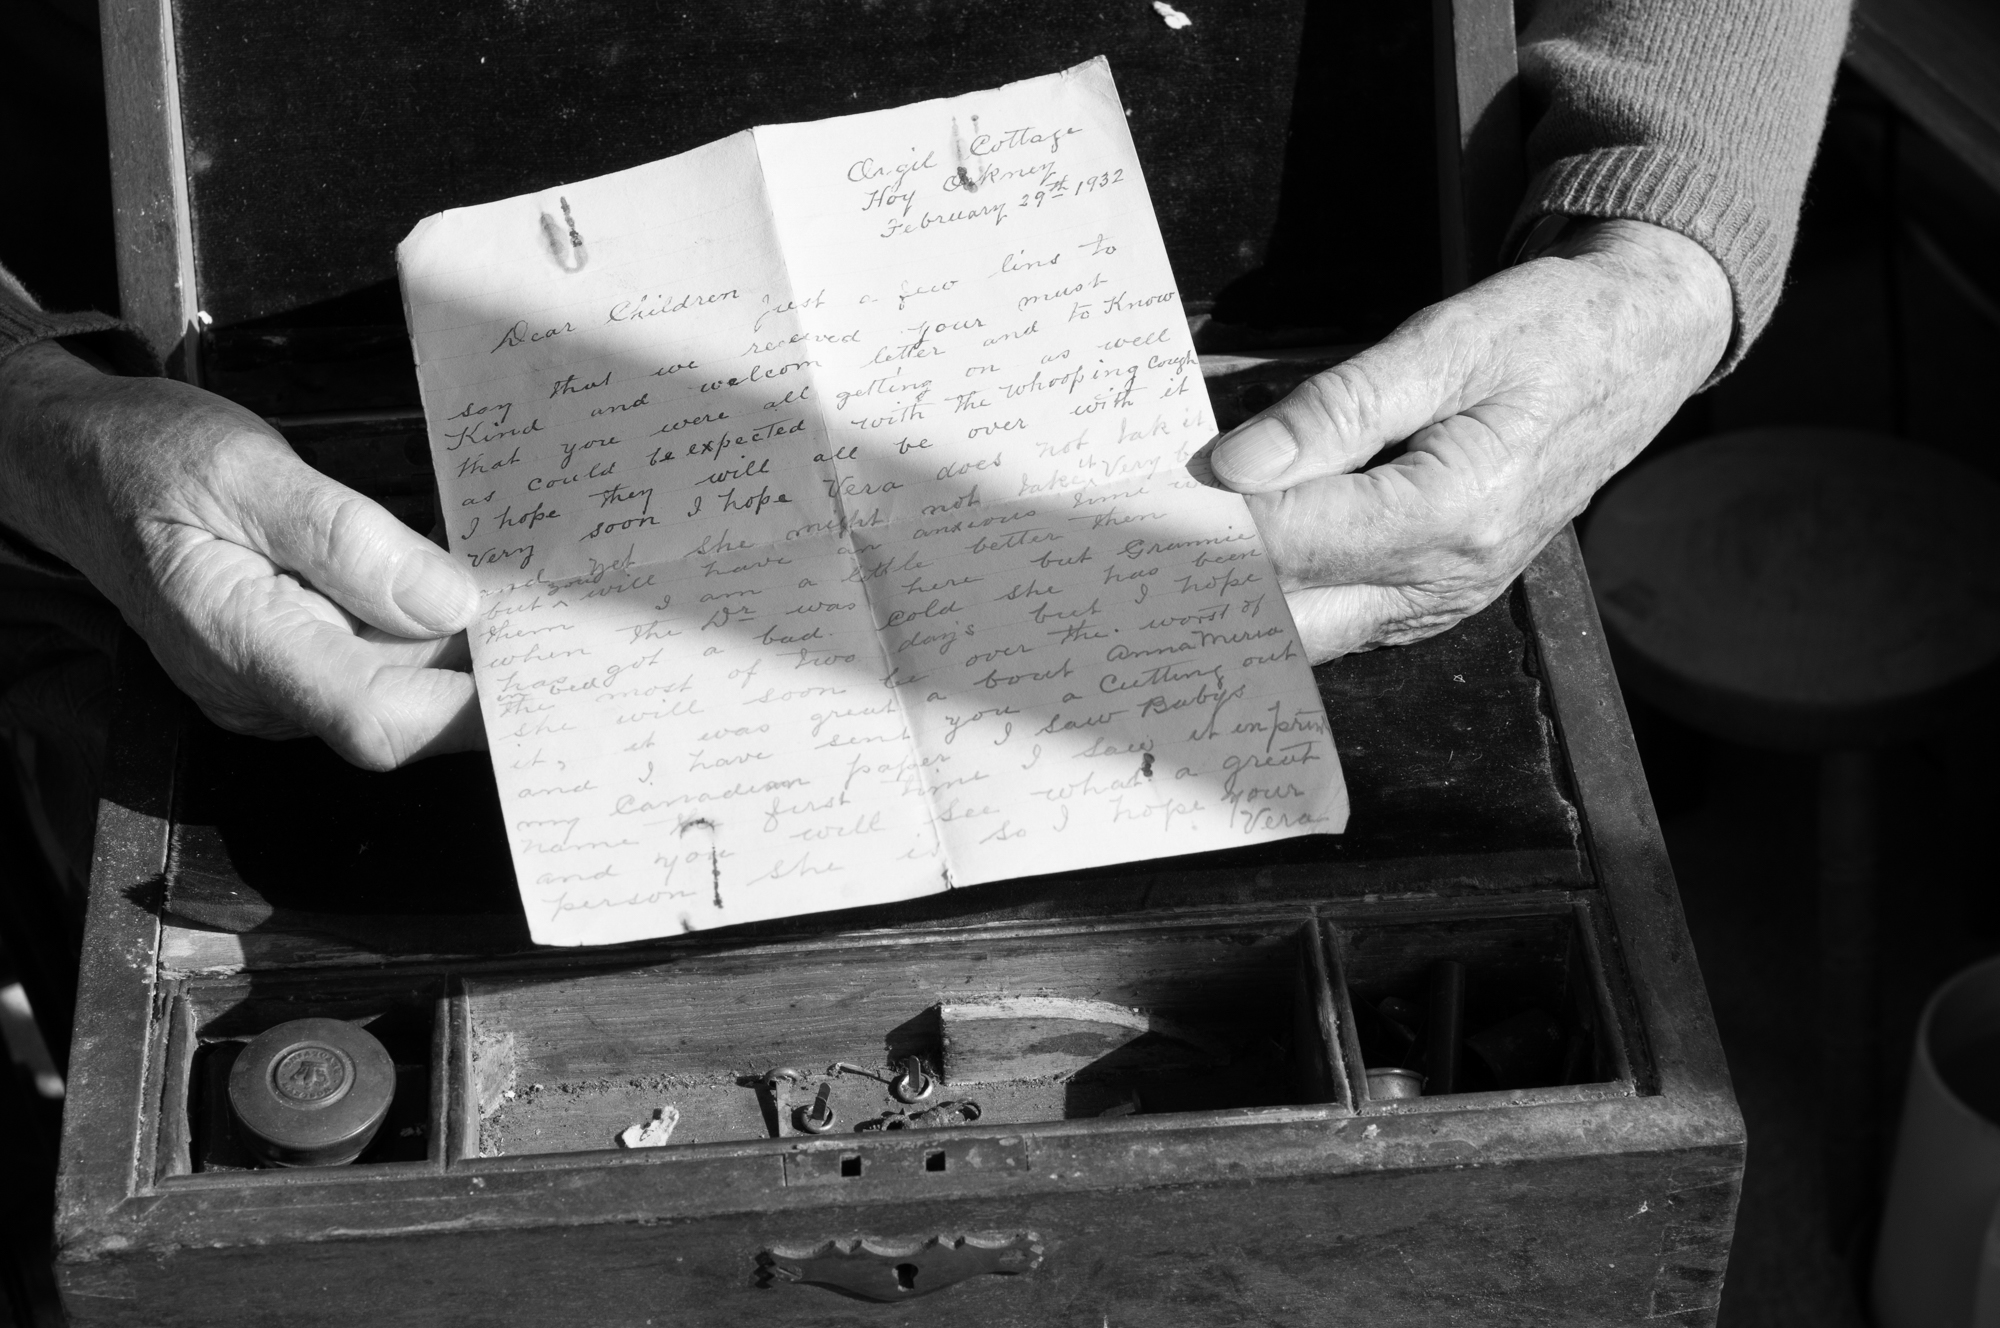 Orgil Cottage
Hoy Orkney
February 29th 1932
Dear Children just a few lins to
say that we received your must
Kind and welcom letter and to Know
that you were all getting on as well
as could be expected with the whooping Cough
I hope they will all be over with it
very soon I hope Vera does not tak it
and yet she might not take it Very
but you will have an anxious time
them I am a little better then
when the Dr was here but Grannie
has got a bad cold she has been
in bed the most of two days but I hope
she will soon be over the worst of
it, it was great a bout Anna Miria
and I have sent you a Cutting out
my Canadian paper I saw Babys
name the first time I saw it in print
and you will see what a great
person she is so I hope your
Vera